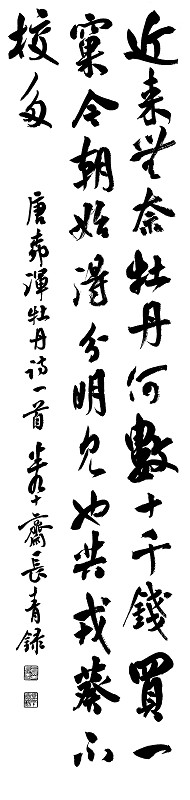 近来無奈牡丹何數十千錢買一
窠今朝始得分明見也共戎葵不
校多
唐柳渾牡丹诗一首 半九十齋長青録